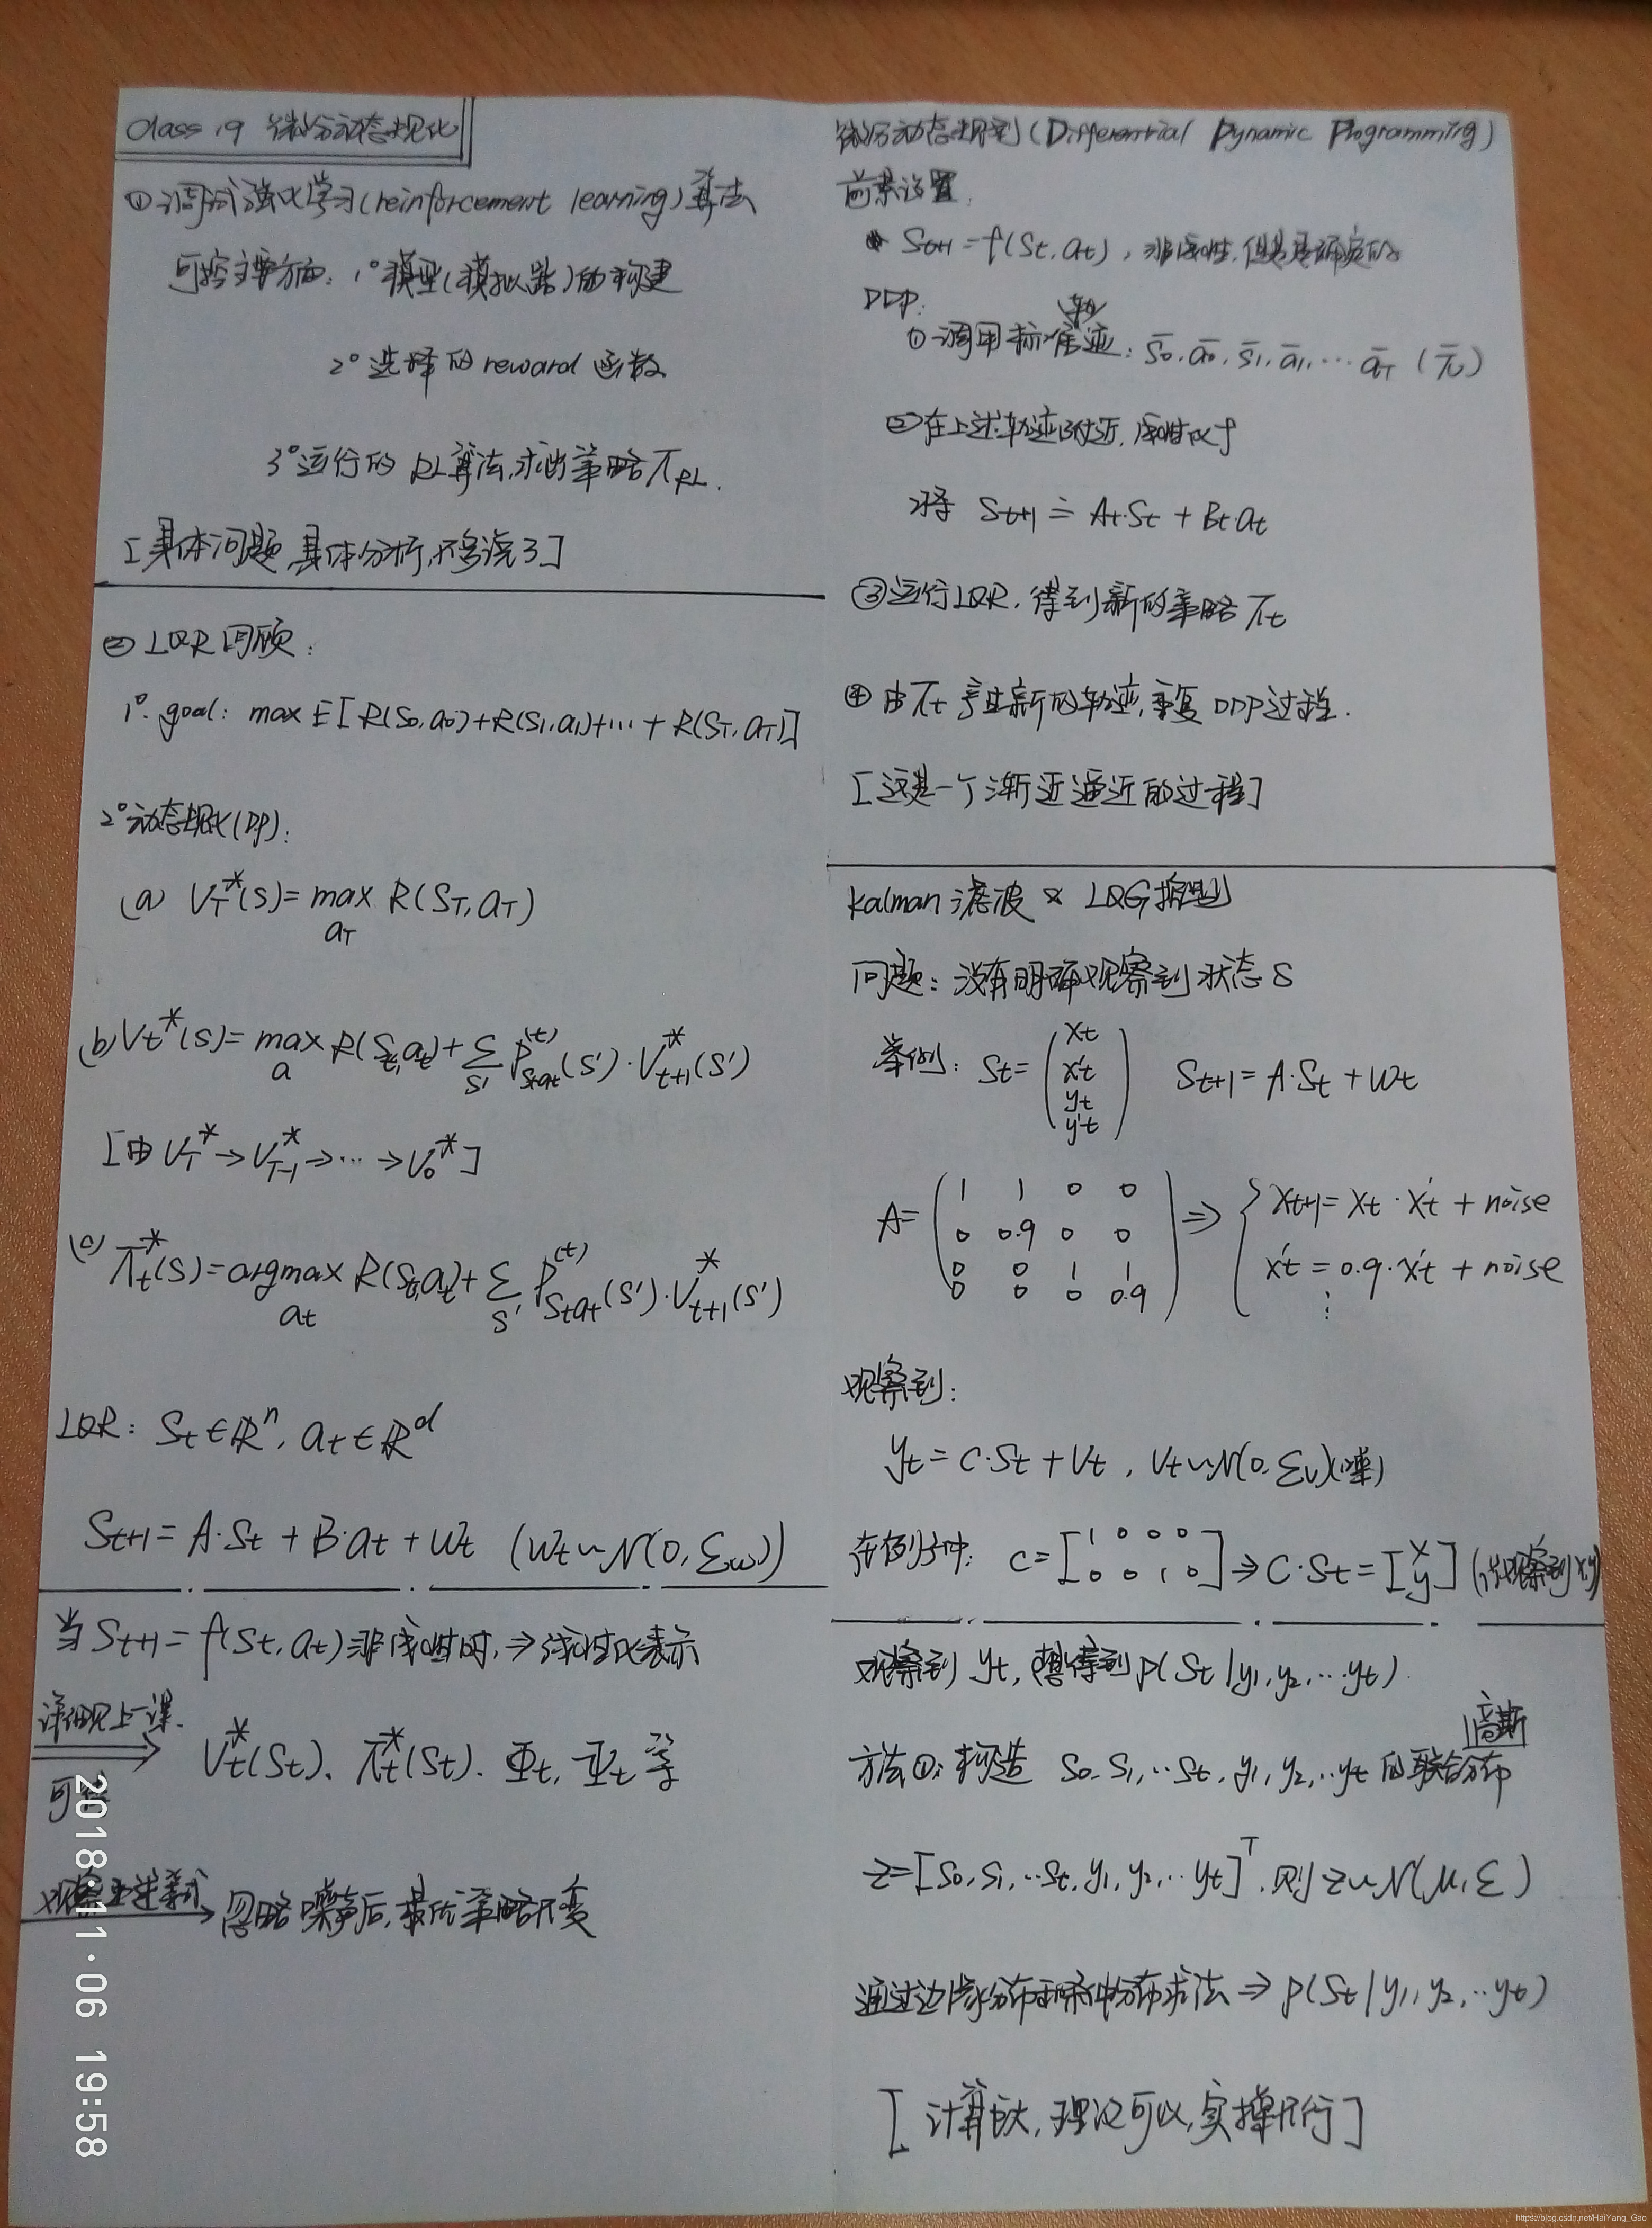 Class 19 微分动态规化
① 调试强化学习(reinforcement learning)算法
可控主要方面: 1° 模型(模拟器)的构建
2° 选择的 reward 函数
3° 运行的 RL算法,求出策略 π_RL.
[具体问题,具体分析,不多说了]
② LQR 回顾:
1°. goal: max E[R(S₀,a₀)+R(S₁,a₁)+…+R(S_T,a_T)]
2° 动态规化(DP):
(a) V_T^*(s)= max_{a_T} R(S_T,a_T)
(b) V_t^*(s)= max_a R(S_t,a_t)+∑_{s'} P_{s_t a_t}^{(t)}(s')·V_{t+1}^*(s')
[由 V_T^*→V_{T-1}^*→…→V_0^*]
(c) π_t^*(s)=argmax_{a_t} R(S_t,a_t)+∑_{s'} P_{s_t a_t}^{(t)}(s')·V_{t+1}^*(s')
LQR: S_t∈ℝ^n, a_t∈ℝ^d
S_{t+1}=A·S_t+B·a_t+w_t (w_t~N(0,Σ_w))
当 S_{t+1}=f(S_t,a_t)非线性时,⇒线性化表示
详细见上一课.
V_t^*(S_t)、π_t^*(S_t)、Φ_t, Ψ_t 等
可
忽略噪声后,最优策略不变
微分动态规划(Differential Dynamic Programming)
前景设置:
S_{t+1}=f(S_t,a_t), 非线性,但是是确定的
DDP:
① 调用标准轨迹: s̄₀,ā₀,s̄₁,ā₁,…ā_T (π̄)
② 在上述轨迹附近,线性化f
将 S_{t+1}≐A_t·S_t+B_t·a_t
③ 运行LQR,得到新的策略π_t
④ 由π_t产生新的轨迹,重复DDP过程.
[这是一个渐近逼近的过程]
Kalman 滤波 & LQG控制
问题: 没有明确观察到状态S
举例: S_t=(x_t ẋ_t y_t ẏ_t) S_{t+1}=A·S_t+w_t
A=(1 1 0 0
0 0.9 0 0
0 0 1 1
0 0 0 0.9) ⇒ { x_{t+1}=x_t·ẋ_t+noise
ẋ_t=0.9·ẋ_t+noise
⋮
观察到:
y_t=C·S_t+v_t, v_t~N(0,Σ_v)(噪)
在例子中: C=[1 0 0 0
0 0 1 0]⇒C·S_t=[x y] (仅观察到x,y)
观察到y_t,想得到p(S_t|y₁,y₂,…y_t).
方法①: 构造 S₀,S₁,…S_t,y₁,y₂,…y_t的联合高斯分布
z=[S₀,S₁,…S_t,y₁,y₂,…y_t]^T,则z~N(μ,Σ)
通过边缘分布和条件分布求法⇒p(S_t|y₁,y₂,…y_t)
[计算太大,理论可以,实操不行]
2018·11·06 19:58
https://blog.csdn.net/HaiYang_Gao